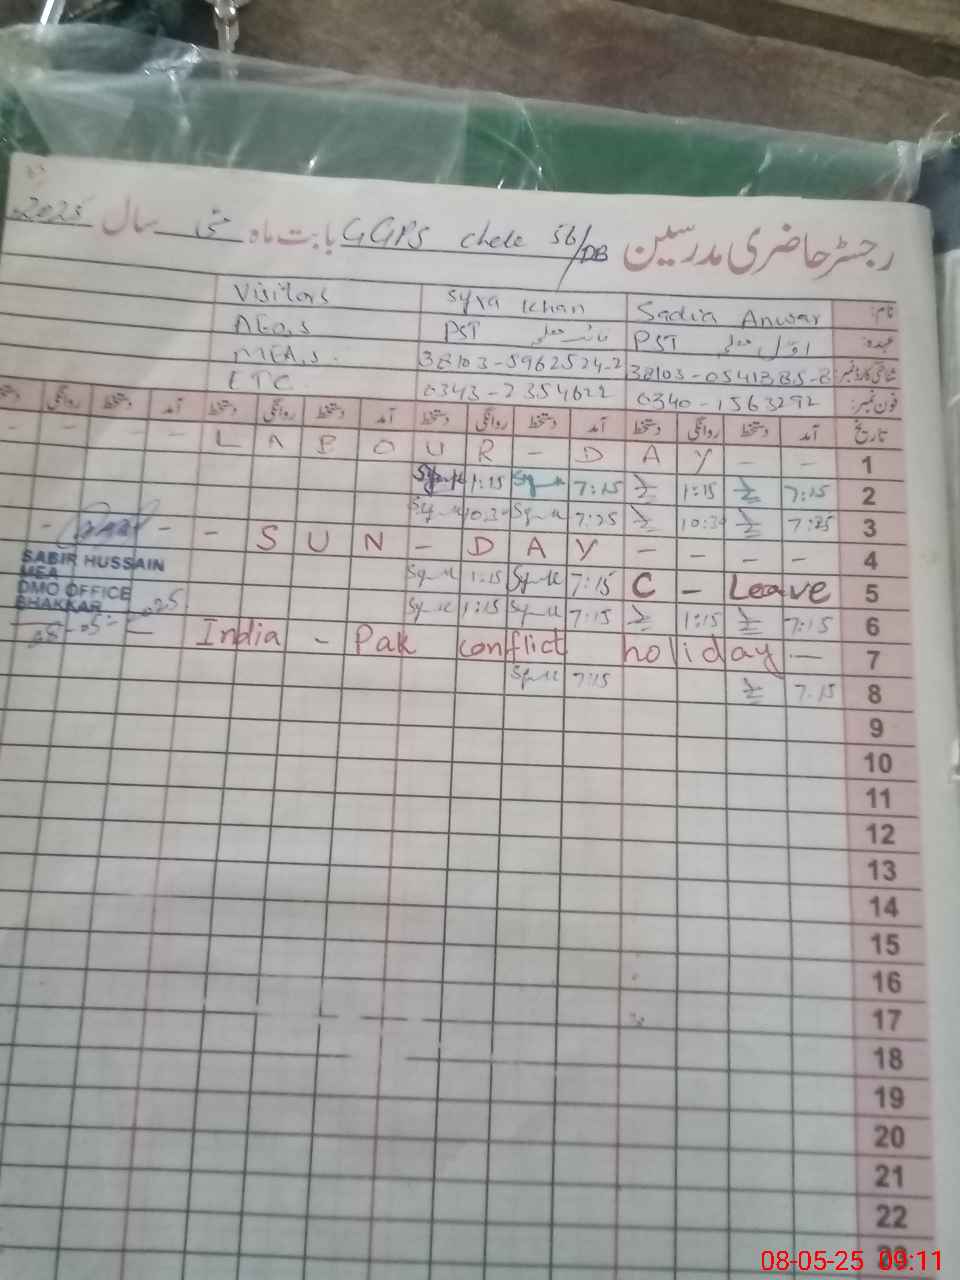 رجسٹر حاضری مدرسین GGPS chele 56/DB بابت ماہ مئی سال 2025
نام: Sadia Anwar Syra Khan Visitors
عہدہ: PST اول معلمہ PST نائب معلمہ AEO,S
شناختی کارڈ نمبر: 38103-0541385-8 38103-5962524-2 MEA,S.
فون نمبر: 0340-1563292 0343-2354622 ETC
تاریخ آمد دستخط روانگی دستخط آمد دستخط روانگی دستخط آمد دستخط روانگی دستخط آمد دستخط روانگی دستخط
1 - - - - L A B O U R - D A Y - -
2 7:15 1:15 7:15 1:15
3 7:25 10:30 7:25 10:30
4 - - - S U N - DAY - - - -
5 C - Leave 7:15 1:15
6 7:15 1:15 7:15 1:15
7 India - Pak conflict holiday -
8 7:15 7:15
SABIR HUSSAIN
MEA
DMO OFFICE
BHAKKAR
08-05-2025
9
10
11
12
13
14
15
16
17
18
19
20
21
22
23
08-05-25 09:11